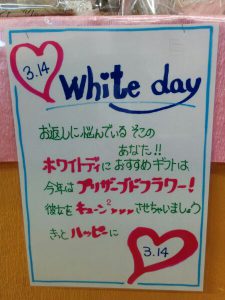 3.14
White day
お返しに悩んでいる そこの
あなた!!
ホワイトディに おすすめギフトは
今年は プリザーブドフラワー!
彼女を キューン2 させちゃいましょう
きっと ハッピーに
3.14